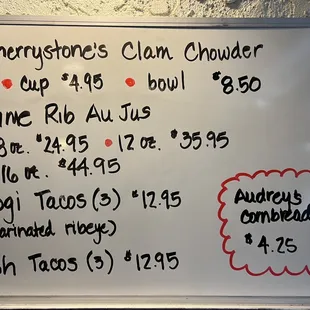 herrystone's Clam Chowder
• cup $4.95 • bowl $8.50
ime Rib Au Jus
8 oz. $24.95 • 12 oz. $35.95
16 oz. $44.95
ogi Tacos (3) $12.95
arinated ribeye)
sh Tacos (3) $12.95
Audrey's
cornbread
$4.25